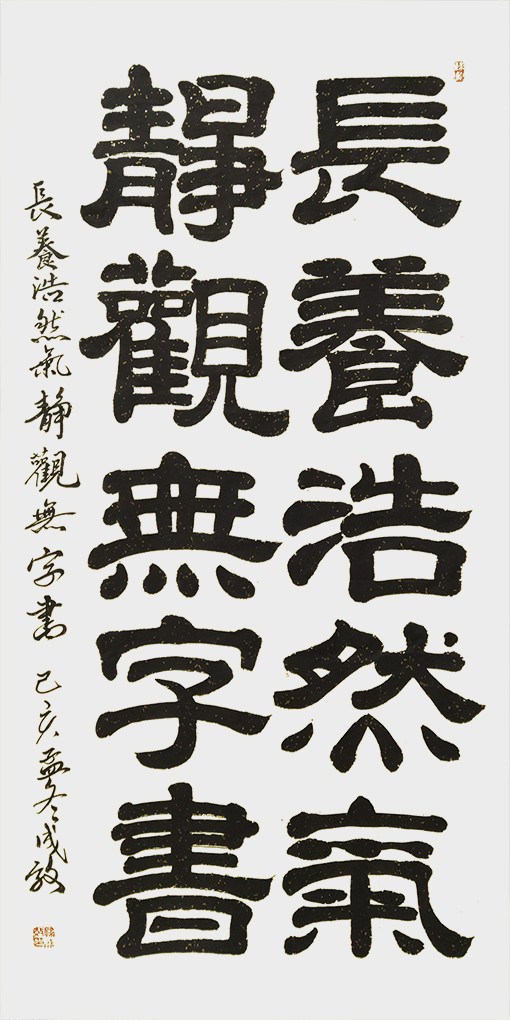 長養浩然氣
靜觀無字書
長養浩然氣靜觀無字書 己亥孟冬成敦